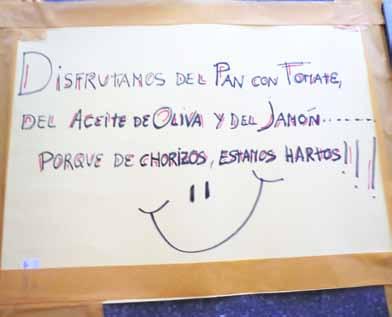 DISFRUTAMOS DEL PAN CON TOMATE,
DEL ACEITE DE OLIVA Y DEL JAMÓN.......
PORQUE DE CHORIZOS, ESTAMOS HARTOS!!!